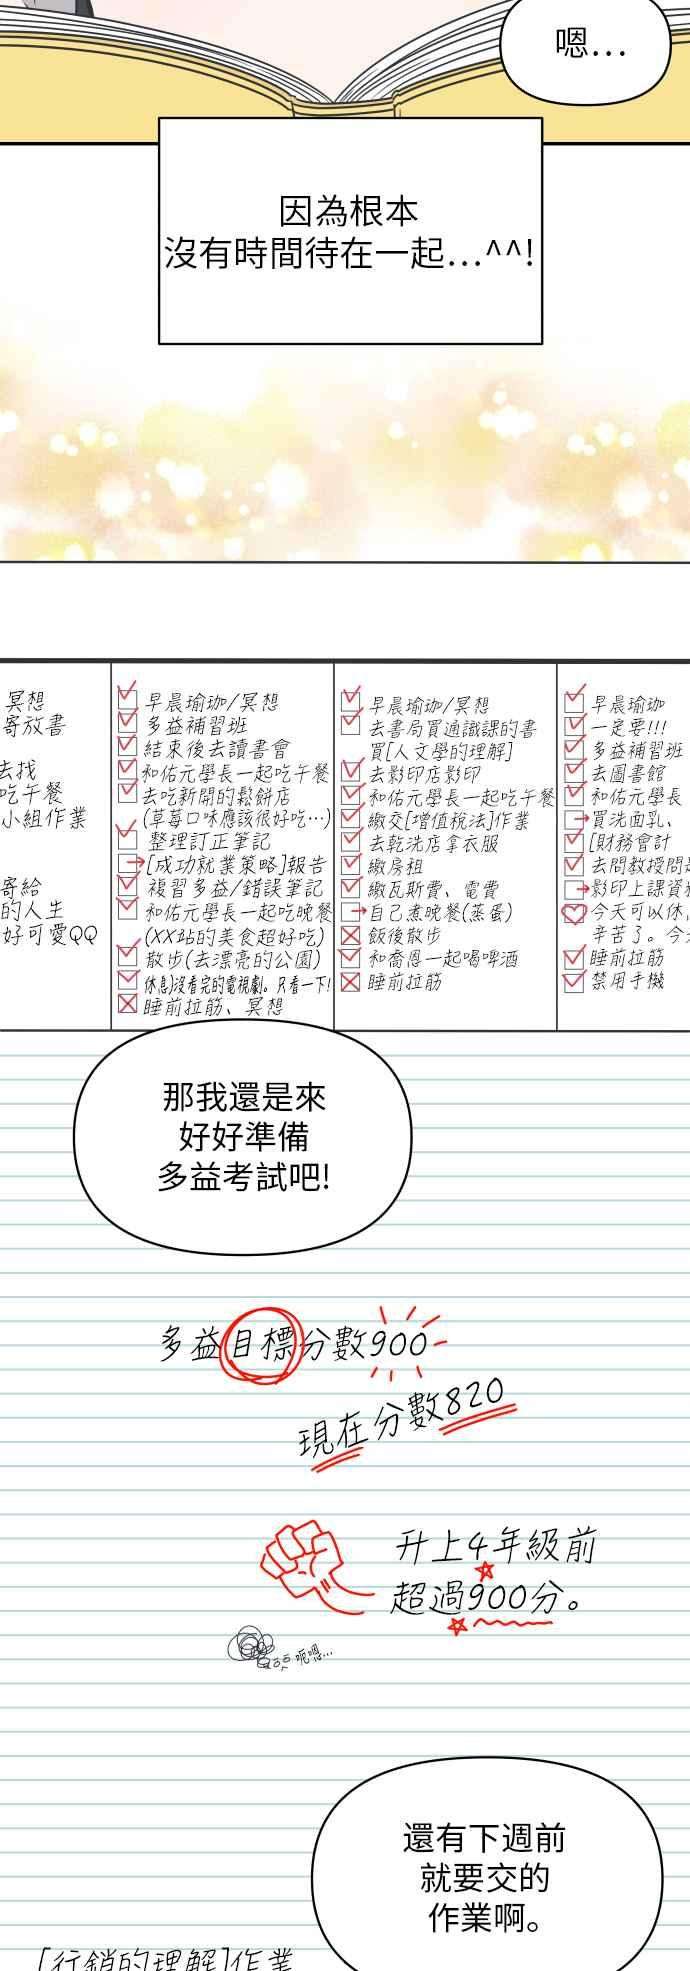 嗯...
因為根本
沒有時間待在一起...^^!
冥想
寄放書
去找
吃午餐
小組作業
寄給
的人生
好可愛QQ
早晨瑜珈/冥想
多益補習班
結束後去讀書會
和佑元學長一起吃午餐
去吃新開的鬆餅店
(草莓口味應該很好吃…)
整理訂正筆記
→[成功就業策略]報告
複習多益/錯誤筆記
和佑元學長一起吃晚餐
(XX站的美食超好吃)
散步(去漂亮的公園)
休息)沒看完的電視劇。只看一下!
睡前拉筋、冥想
早晨瑜珈/冥想
去書局買通識課的書
買[人文學的理解]
去影印店影印
和佑元學長一起吃午餐
繳交[增值稅法]作業
去乾洗店拿衣服
繳房租
繳瓦斯費、電費
→自己煮晚餐(蒸蛋)
飯後散步
和喬恩一起喝啤酒
睡前拉筋
早晨瑜珈
一定要!!!
多益補習班
去圖書館
和佑元學長
→買洗面乳、
[財務會計
去問教授問
→影印上課資
今天可以休
辛苦了。今
睡前拉筋
禁用手機
那我還是來
好好準備
多益考試吧!
多益目標分數900
現在分數820
升上4年級前
超過900分。
呃嗯...
還有下週前
就要交的
作業啊。
[行銷的理解]作業